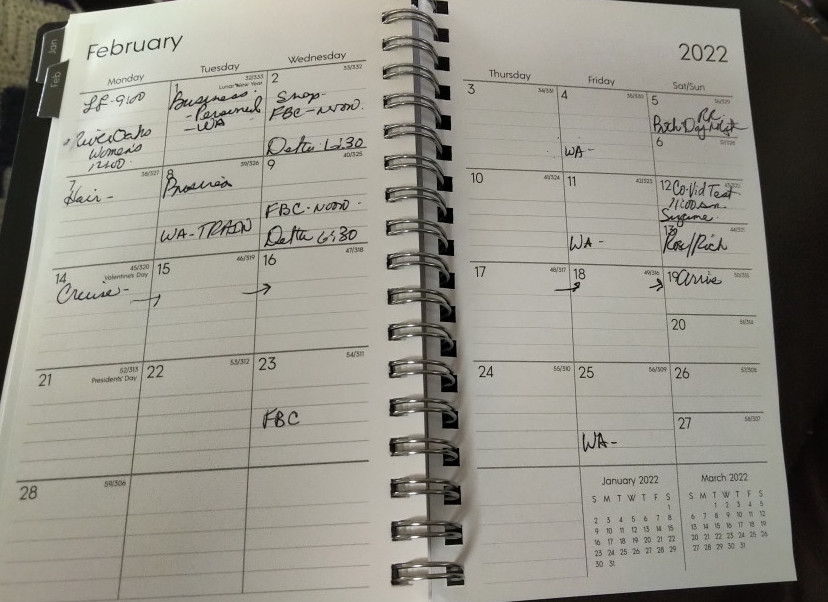 Jan
Feb
February
Monday Tuesday Wednesday
32/333
Lunar New Year
33/332
2
LF-9:00
Business
-Personal
-WA
Snap-
FBC-NOON.
River Oaks
Women's
12:00.
Delta 6:30
7
38/327
8
39/326
9
40/325
Hair-
WA-TRAIN
FBC-NOON-
Delta 6:30
14
45/320
Valentine's Day
15
46/319
16
47/318
Cruise- → →
21
52/313
Presidents' Day
22
53/312
23
54/311
FBC
28
59/306
2022
Thursday Friday Sat/Sun
3
34/331
4
35/330
5
36/329
RR
WA-
6
37/328
10
41/324
11
42/323
12 Co-Vid Test
11:00 am
WA-
13
44/321
Ron/Rich
17
48/317
18
49/316
19 Arrive
50/315
→ →
20
51/314
24
55/310
25
56/309
26
57/308
WA-
27
58/307
January 2022
S M T W T F S
1
2 3 4 5 6 7 8
9 10 11 12 13 14 15
16 17 18 19 20 21 22
23 24 25 26 27 28 29
30 31
March 2022
S M T W T F S
1 2 3 4 5
6 7 8 9 10 11 12
13 14 15 16 17 18 19
20 21 22 23 24 25 26
27 28 29 30 31